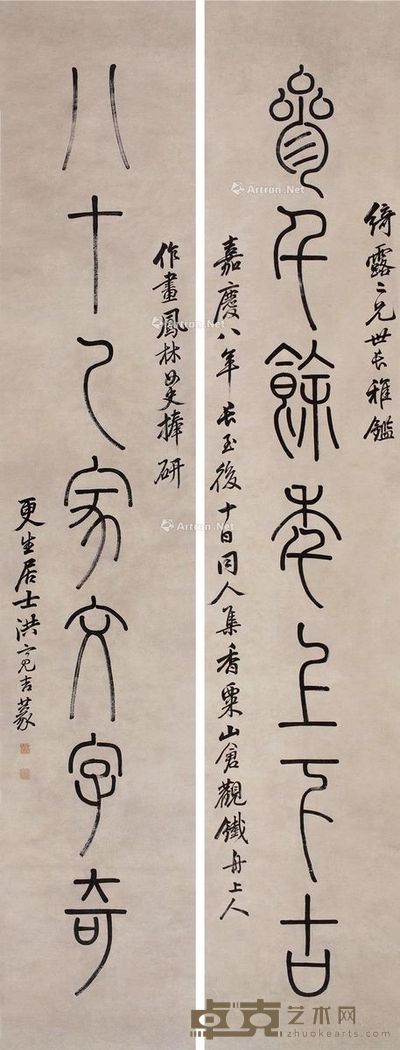 绮露二兄世长雅鑑
参千餘年上下古
嘉慶八年长至後十日同人集香粟山倉觀鐵舟上人
作畫鳳林女史捧研
八十乙家文字奇
更生居士洪亮吉篆
Artron.Net
Artron.Net
Artron.Net
Artron.Net
卓克艺术网
zhuokearts.com